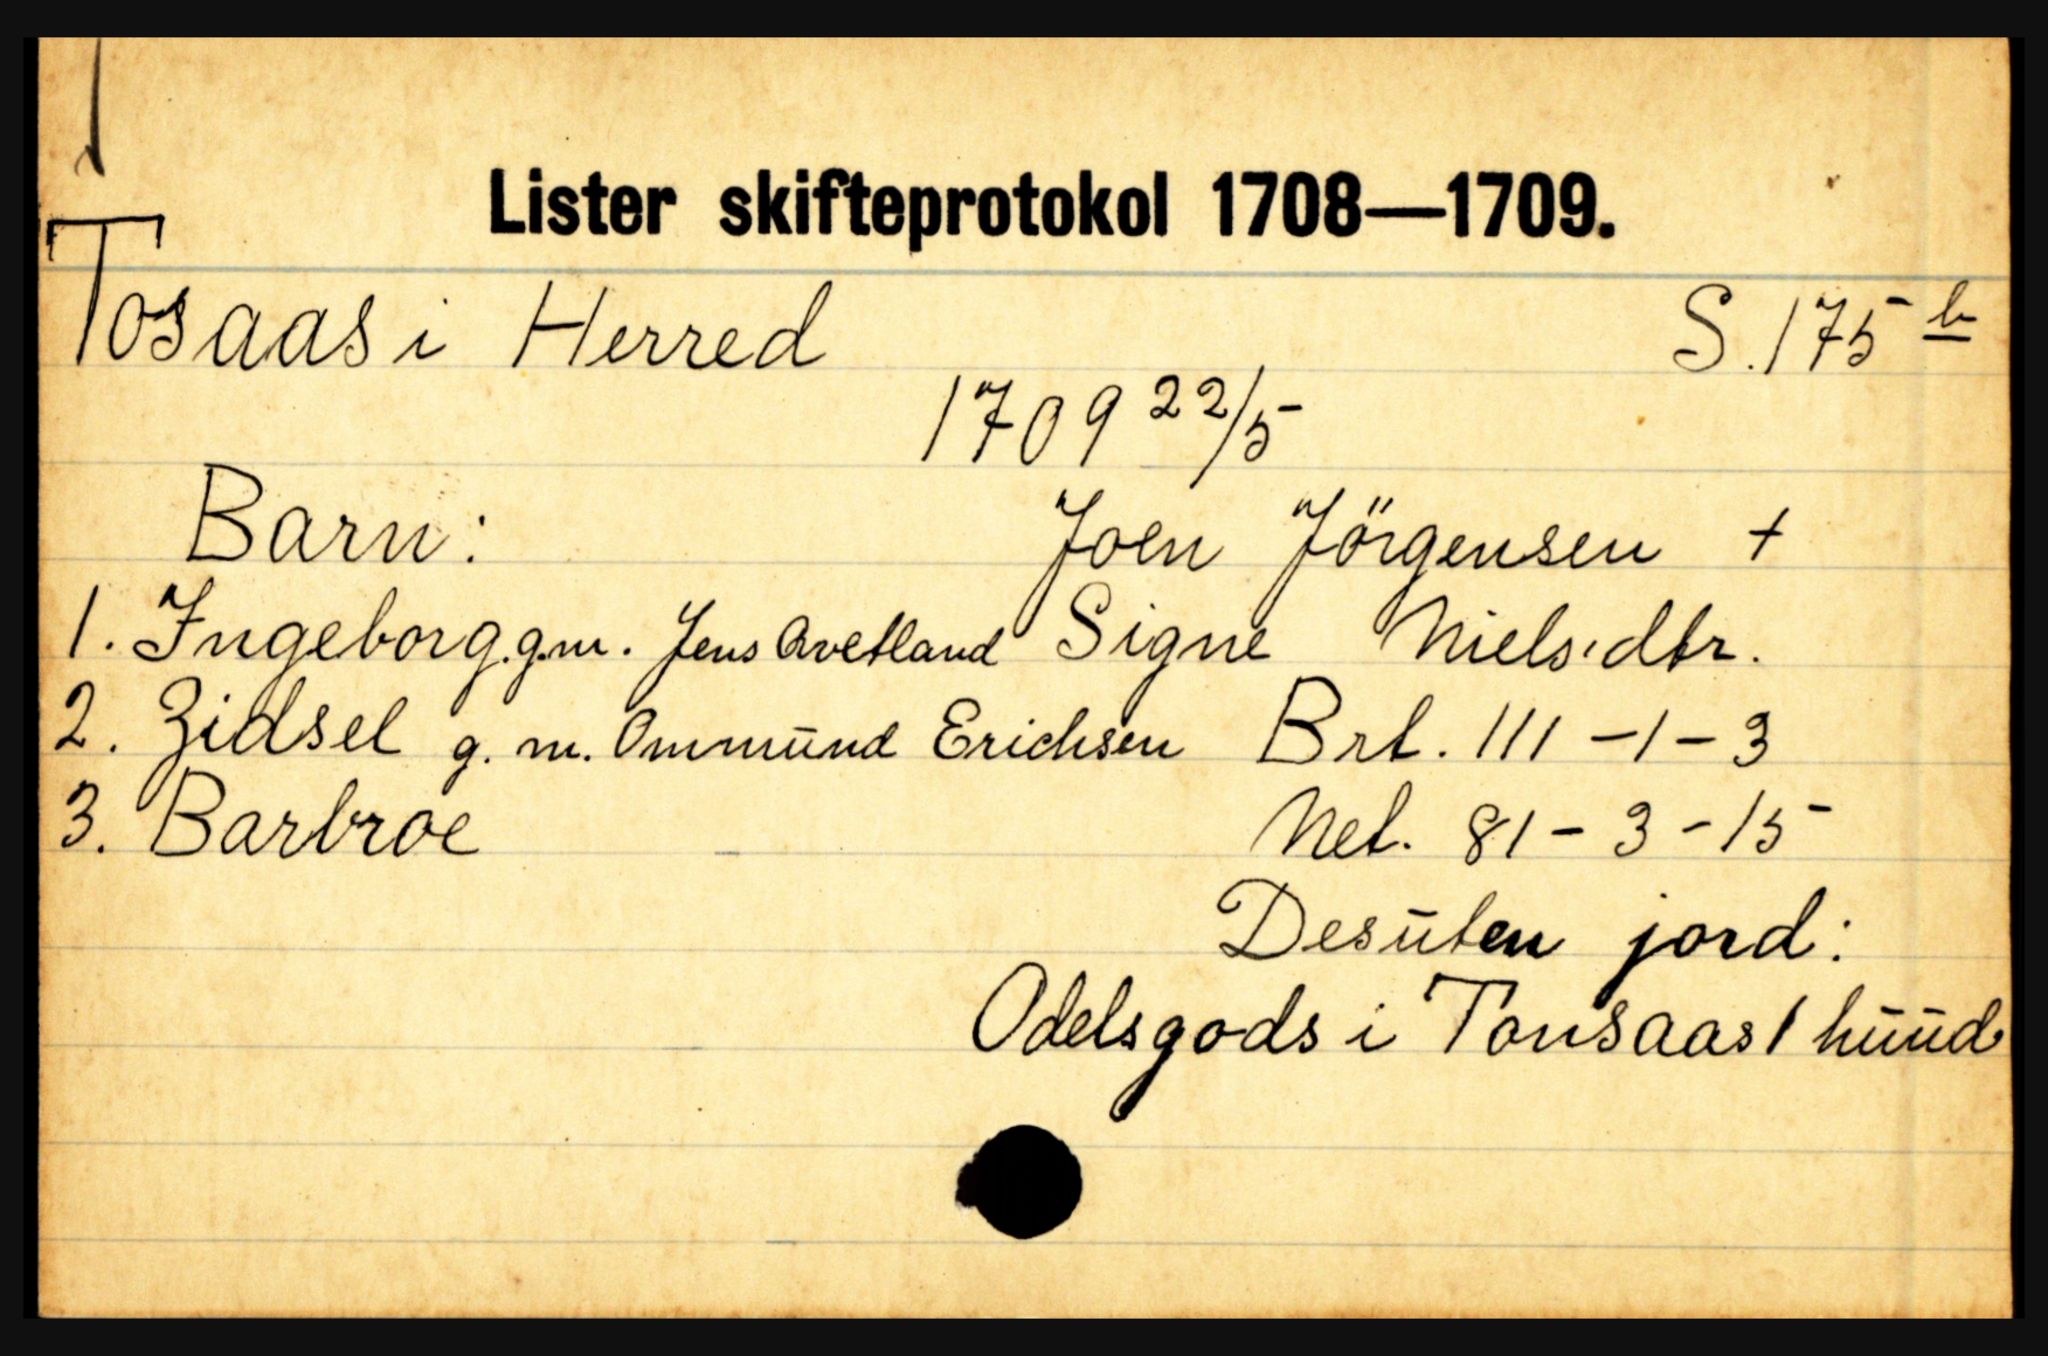 Lister skifteprotokol 1708—1709.
Tosaas i Herred S. 175 b
1709 22/5
Barn: Joen Jörgensen +
1. Ingeborg. g.m. Jens Avetland Signe Nielsdtr.
2. Zidsel g. m. Ommund Erichsen Brt. 111 - 1 - 3
3. Barbroe Net. 81 - 3 - 15
Desuten jord:
Odelsgods i Tonsaas 1 huud